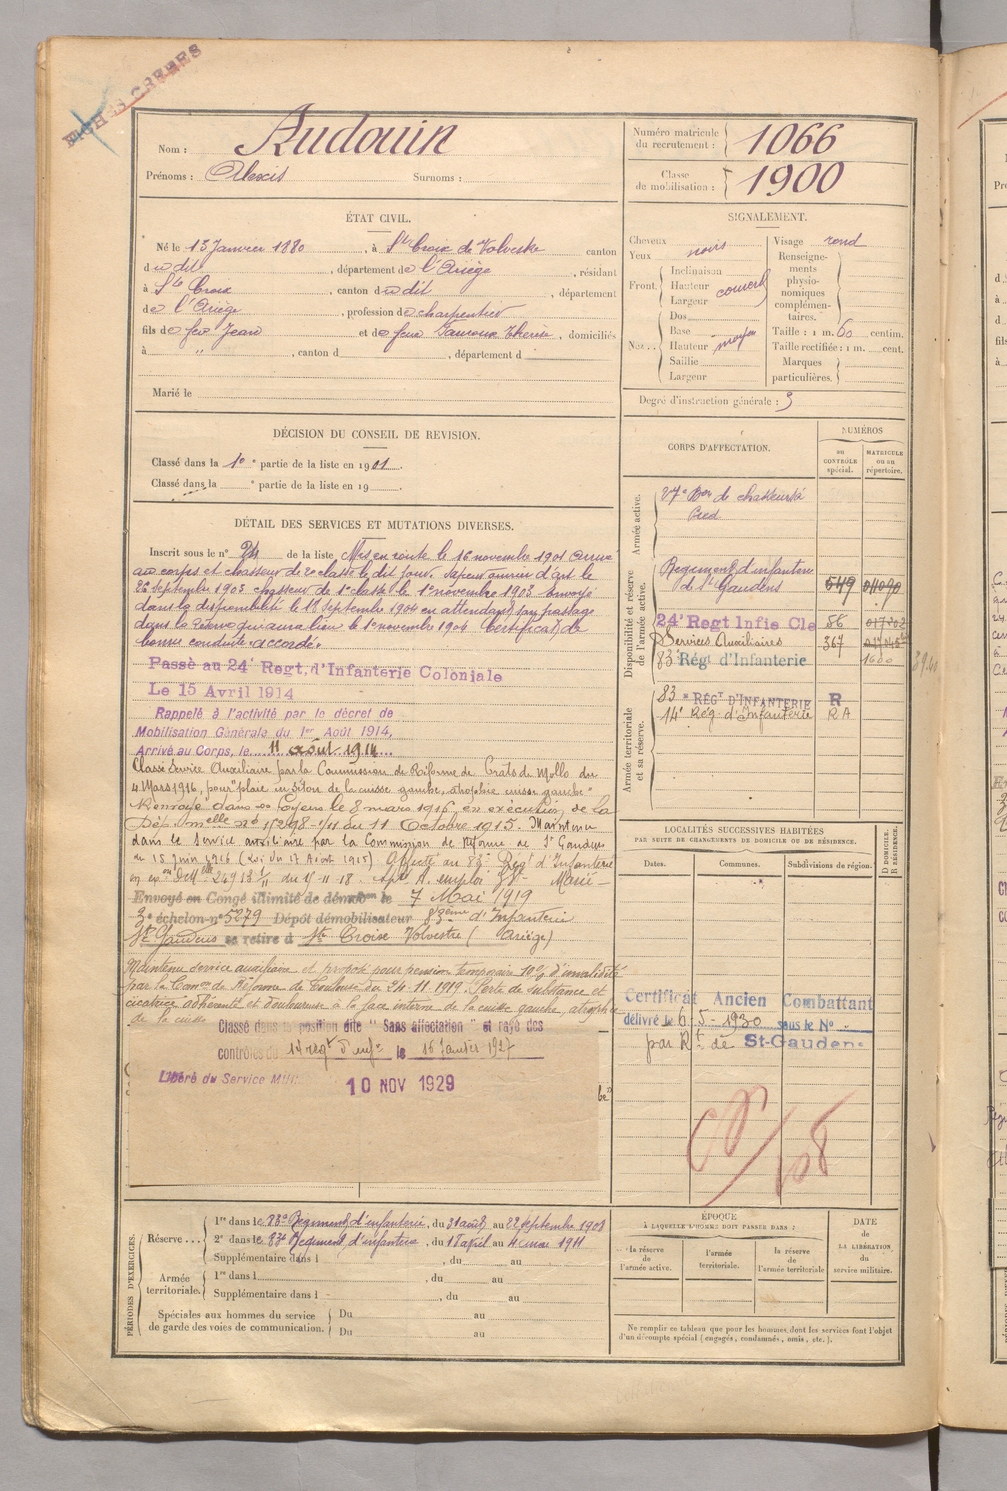 FICHES CRÉÉES
Nom : Audouin
Prénoms : Alexis Surnoms :
Numéro matricule du recrutement : 1066
Classe de mobilisation : 1900
ÉTAT CIVIL.
Né le 13 Janvier 1880, à Ste Croix de Volvestre canton
du dit, département de l'Ariège, résidant
à Ste Croix, canton du dit, département
de l'Ariège, profession de charpentier
fils de feu Jean et de feue Therèse, domiciliés
à " , canton d , département d
Marié le
SIGNALEMENT.
Cheveux noirs
Yeux
Front. Inclinaison
Hauteur couvert
Largeur
Nez... Dos
Base
Hauteur moyen
Saillie
Largeur
Visage rond
Renseignements physionomiques complémentaires.
Taille : 1 m. 60 centim.
Taille rectifiée : 1 m. cent.
Marques particulières.
Degré d'instruction générale : 3
DÉCISION DU CONSEIL DE REVISION.
Classé dans la 1e partie de la liste en 1901.
Classé dans la e partie de la liste en 19
DÉTAIL DES SERVICES ET MUTATIONS DIVERSES.
Inscrit sous le n° 24 de la liste Mis en route le 16 novembre 1901 arrivé
au corps et chasseur de 2e classe le dit jour. Sapeur ouvrier d'art le
26 septembre 1903 chasseur de 1e classe le 1e novembre 1903 Envoyé
dans la disponibilité le 18 septembre 1904 en attendant son passage
dans la réserve qui aura lieu le 1e novembre 1904 Certificat de
bonne conduite accordé.
Passé au 24e Regt, d'Infanterie Coloniale
Le 15 Avril 1914
Rappelé à l'activité par le décret de
Mobilisation Générale du 1er Août 1914,
Arrivé au Corps, le 11 août 1914
Classé Service Auxiliaire par la Commission de Réforme de Prats de Mollo du
4 Mars 1916, pour "plaie en séton de la cuisse gauche, atrophie cuisse gauche"
Renvoyé dans ses foyers le 8 mars 1916 en exécution de la
Dép. melle n° 1/11 du 11 Octobre 1915. Maintenu
dans le Service auxiliaire par la Commission de Réforme de St Gaudens
du 15 Juin 1916 (Loi du 17 Août 1915) Affecté au 83e Regt d'Infanterie
24913 1/11 du 1-11-18.
Envoyé en Congé illimité de démobon le 7 Mai 1919
3e échelon n° 5279 Dépôt démobilisateur 83ème d'Infanterie
St Gaudens se retire à Ste Croix Volvestre (Ariège)
Maintenu service auxiliaire et proposé pour pension temporaire 10% d'invalidité
par la Comon de Réforme de Toulouse du 24.11.1919. Perte de substance et
cicatrice adhérente et douloureuse à la face interne de la cuisse gauche, atrophie
de la cuisse
Classé dans la position dite "Sans affectation" et rayé des
contrôles du 14e regt d'infie le 16 Janvier 1927
Libéré du Service Mili
10 NOV 1929
CORPS D'AFFECTATION.
NUMÉROS
au CONTRÔLE spécial.
MATRICULE ou au répertoire.
Armée active.
27e Bon de chasseurs à
Pied
Disponibilité et réserve de l'armée active.
Régiment d'infanterie
de St Gaudens 549
24e Regt Infie Cle 86
Services Auxiliaires 367
83 Régt d'Infanterie 1600
Armée territoriale et sa réserve.
83e RÉGT D'INFANTERIE R
14e Rég d'Infanterie RA
LOCALITÉS SUCCESSIVES HABITÉES
PAR SUITE DE CHANGEMENTS DE DOMICILE OU DE RÉSIDENCE.
Dates. Communes. Subdivisions de région.
D DOMICILE.
R RÉSIDENCE.
Certificat Ancien Combattant
délivré le 6-5-1930 sous le N° "
par Rt de St-Gaudens
PÉRIODES D'EXERCICES.
Réserve... 1re dans le 83e Régiment d'infanterie, du 31 août au 22 septembre 1908
2e dans le 83e Régiment d'infanterie, du 18 avril au 4 mai 1911
Supplémentaire dans l , du au
Armée territoriale. 1re dans l , du au
Supplémentaire dans l , du au
Spéciales aux hommes du service de garde des voies de communication. Du au
Du au
ÉPOQUE
À LAQUELLE L'HOMME DOIT PASSER DANS :
la réserve de l'armée active.
l'armée territoriale.
la réserve de l'armée territoriale
DATE DE LA LIBÉRATION du service militaire.
Ne remplir ce tableau que pour les hommes dont les services font l'objet
d'un décompte spécial (engagés, condamnés, omis, etc.).